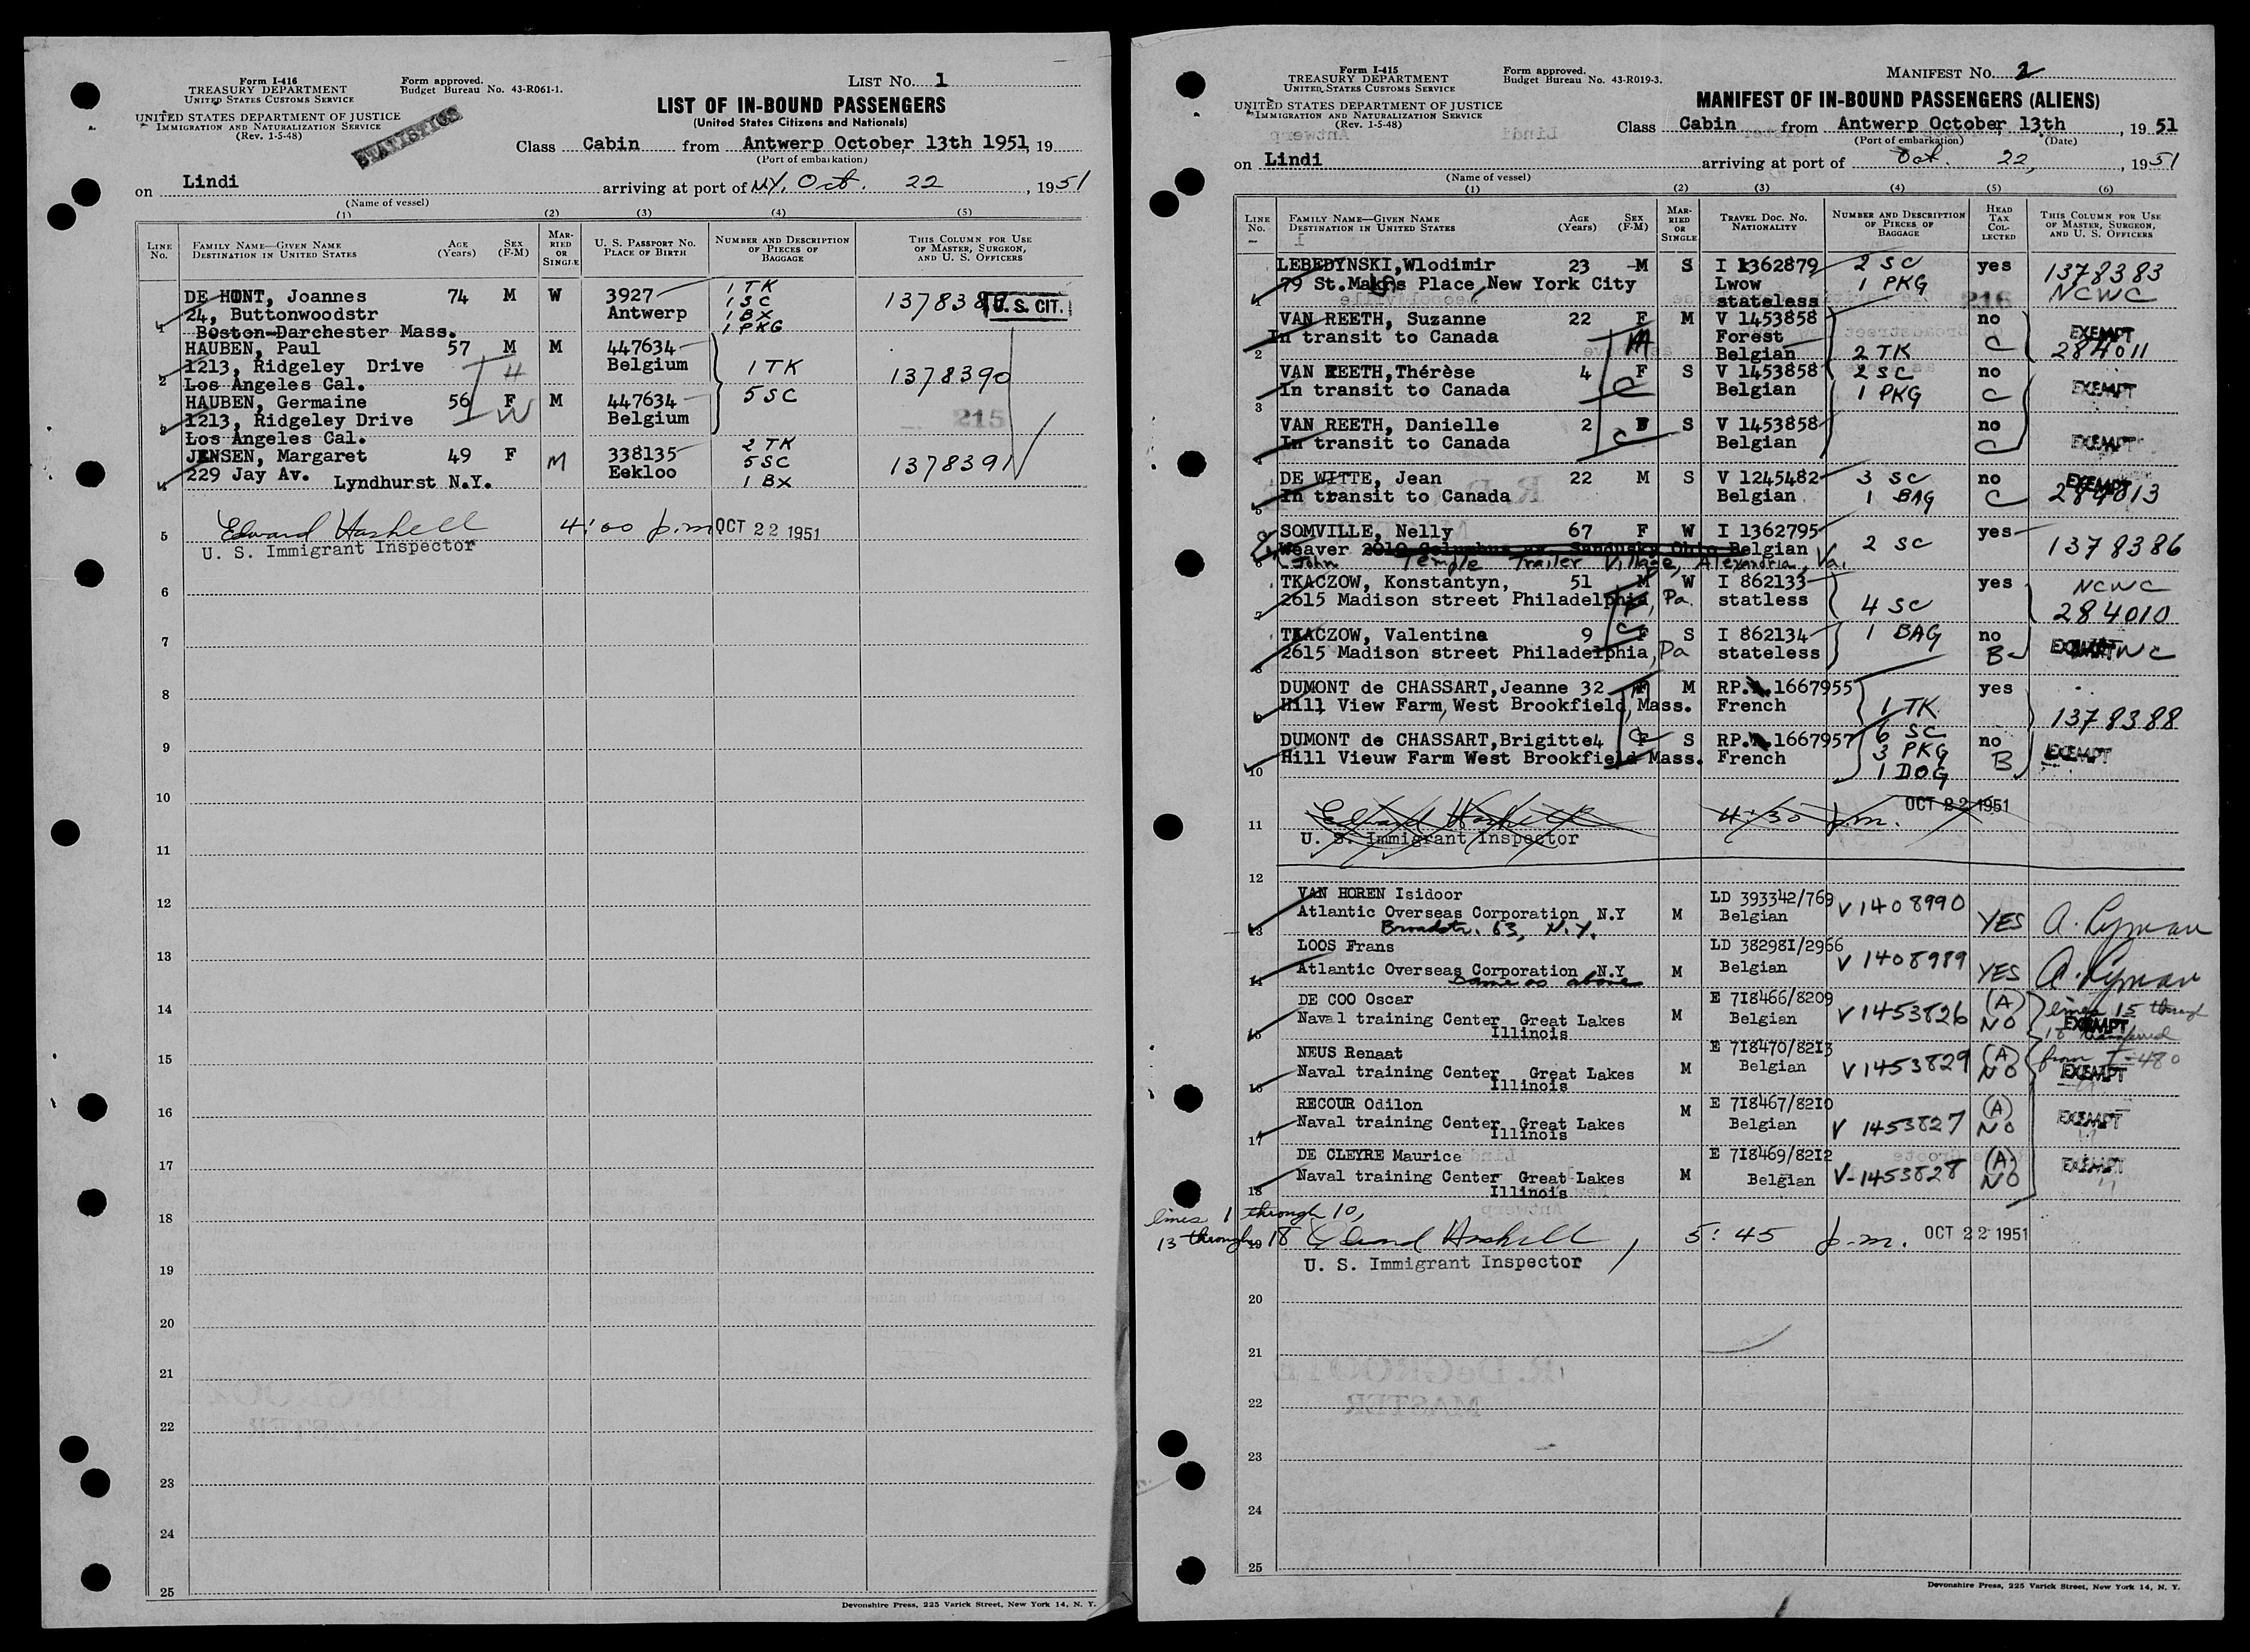 Form I-416
TREASURY DEPARTMENT
UNITED STATES CUSTOMS SERVICE
UNITED STATES DEPARTMENT OF JUSTICE
IMMIGRATION AND NATURALIZATION SERVICE
(Rev. 1-5-48)
Form approved.
Budget Bureau No. 43-R061-1.
STATISTICS
LIST No. 1
LIST OF IN-BOUND PASSENGERS
(United States Citizens and Nationals)
Class Cabin from Antwerp October 13th 1951, 19
(Port of embarkation)
on Lindi arriving at port of N.Y. Oct. 22, 1951
(Name of vessel)
(1) (2) (3) (4) (5)
LINE No.
FAMILY NAME—GIVEN NAME
DESTINATION IN UNITED STATES
AGE (Years)
SEX (F-M)
MARRIED OR SINGLE
U. S. PASSPORT NO.
PLACE OF BIRTH
NUMBER AND DESCRIPTION OF PIECES OF BAGGAGE
THIS COLUMN FOR USE OF MASTER, SURGEON, AND U. S. OFFICERS
DE HONT, Joannes 74 M W 3927 1 TK
24, Buttonwoodstr Antwerp 1 SC 1378387 U.S. CIT.
1 Boston-Darchester Mass. 1 BX
1 PKG
HAUBEN, Paul 57 M M 447634
1213, Ridgeley Drive H Belgium 1 TK 1378390
2 Los Angeles Cal.
HAUBEN, Germaine 56 F M 447634 5 SC
1213, Ridgeley Drive W Belgium 215
3 Los Angeles Cal.
JENSEN, Margaret 49 F M 338135 2 TK
229 Jay Av. Lyndhurst N.Y. Eekloo 5 SC 1378391
4 1 BX
5 Edward Haskell 4:00 p.m OCT 22 1951
U. S. Immigrant Inspector
6
7
8
9
10
11
12
13
14
15
16
17
18
19
20
21
22
23
24
25
Devonshire Press, 225 Varick Street, New York 14, N. Y.
Form I-415
TREASURY DEPARTMENT
UNITED STATES CUSTOMS SERVICE
UNITED STATES DEPARTMENT OF JUSTICE
IMMIGRATION AND NATURALIZATION SERVICE
(Rev. 1-5-48)
Form approved.
Budget Bureau No. 43-R019-3.
MANIFEST No. 2
MANIFEST OF IN-BOUND PASSENGERS (ALIENS)
Class Cabin from Antwerp October 13th, 1951
(Port of embarkation) (Date)
on Lindi arriving at port of Oct. 22, 1951
(Name of vessel)
(1) (2) (3) (4) (5) (6)
LINE No.
FAMILY NAME—GIVEN NAME
DESTINATION IN UNITED STATES
AGE (Years)
SEX (F-M)
MARRIED OR SINGLE
TRAVEL DOC. NO.
NATIONALITY
NUMBER AND DESCRIPTION OF PIECES OF BAGGAGE
HEAD TAX COLLECTED
THIS COLUMN FOR USE OF MASTER, SURGEON, AND U. S. OFFICERS
LEBEDYNSKI, Wlodimir 23 M S I 1362879 2 SC yes 1378383
79 St. Marks Place, New York City Lwow 1 PKG NCWC
1 stateless 216
VAN REETH, Suzanne 22 F M V 1453858 no EXEMPT
In transit to Canada Forest C 284011
2 Belgian 2 TK
VAN REETH, Thérèse 4 F S V 1453858 2 SC no EXEMPT
In transit to Canada C Belgian 1 PKG C
3
VAN REETH, Danielle 2 F S V 1453858 no
In transit to Canada C Belgian C EXEMPT
4
DE WITTE, Jean 22 M S V 1245482 3 SC no EXEMPT
In transit to Canada Belgian 1 BAG C 284013
5
SOMVILLE, Nelly 67 F W I 1362795 yes
Weaver 2019 Columbus av. Sandusky Ohio Belgian 2 SC 1378386
6 John Temple Trailer Village, Alexandria, Va.
TKACZOW, Konstantyn, 51 M W I 862133 yes NCWC
2615 Madison street Philadelphia, Pa. statless 4 SC 284010
7
TKACZOW, Valentine 9 F S I 862134 1 BAG no
2615 Madison street Philadelphia, Pa stateless B EXEMPT
8
DUMONT de CHASSART, Jeanne 32 M RP. 1667955 yes
Hill View Farm, West Brookfield, Mass. French 1 TK 1378388
9
DUMONT de CHASSART, Brigitte 4 F S RP. 1667957 6 SC no
Hill Vieuw Farm West Brookfield Mass. French 3 PKG B EXEMPT
10 1 DOG
11 Edward Haskell 4:30 p.m. OCT 22 1951
U. S. Immigrant Inspector
12
VAN HOREN Isidoor LD 393342/769
Atlantic Overseas Corporation N.Y M Belgian V 1408990 YES A. Lyman
13 Broadstr. 63, N.Y.
LOOS Frans LD 38298I/2966
Atlantic Overseas Corporation N.Y M Belgian V 1408989 YES A. Lyman
14 Same as above
DE COO Oscar E 7I8466/8209 (A) lines 15 through
Naval training Center Great Lakes M Belgian V 1453826 NO EXEMPT
15 Illinois 18 transferred
NEUS Renaat E 7I8470/82I3 (A) from I-480
Naval training Center Great Lakes M Belgian V 1453829 NO EXEMPT
16 Illinois
RECOUR Odilon E 7I8467/82I0 (A)
Naval training Center Great Lakes M Belgian V 1453827 NO EXEMPT
17 Illinois
DE CLEYRE Maurice E 7I8469/82I2 (A)
Naval training Center Great Lakes M Belgian V-1453828 NO EXEMPT
18 Illinois
lines 1 through 10,
13 through 18 Edward Haskell, 5:45 p.m. OCT 22 1951
U. S. Immigrant Inspector
12
13
14
15
16
17
18
19
20
21
22
23
24
25
Devonshire Press, 225 Varick Street, New York 14, N. Y.